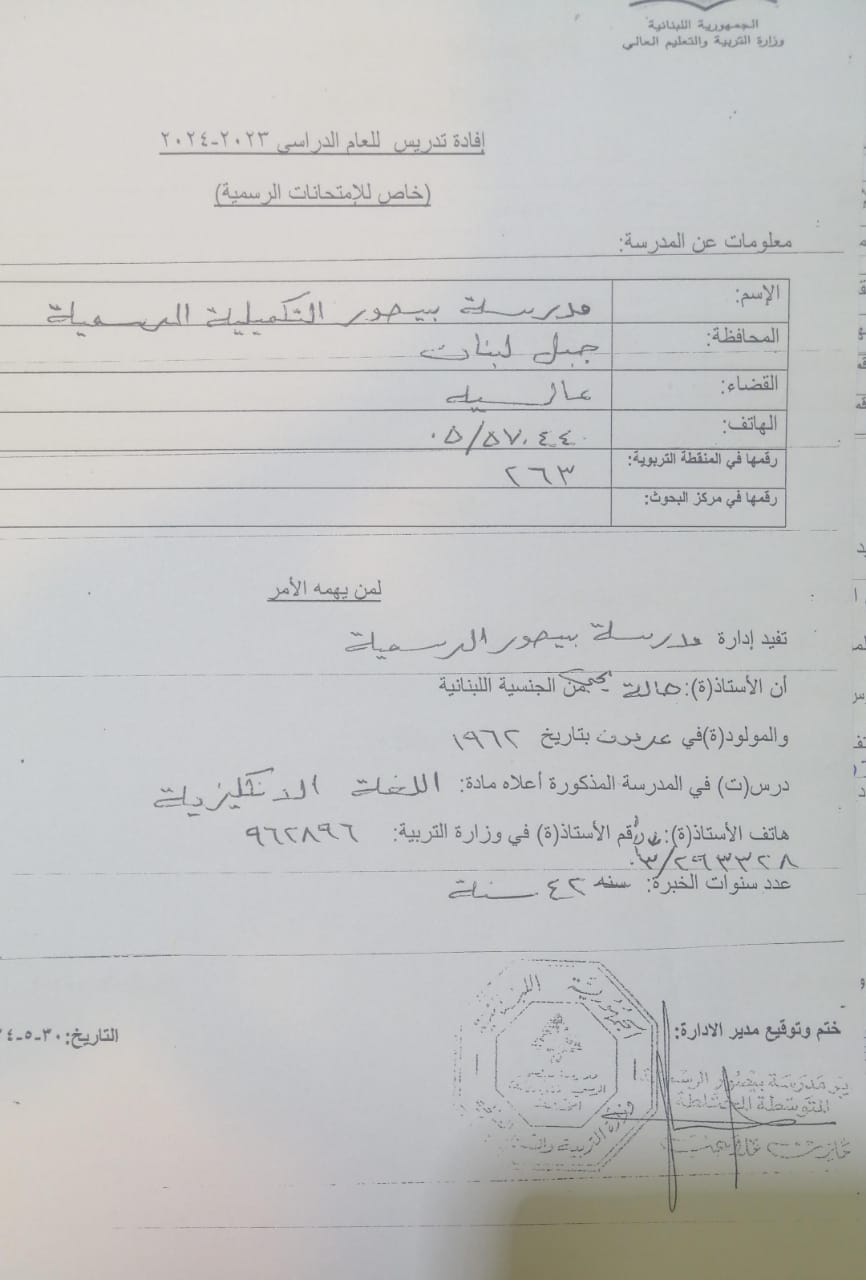 الجمهورية اللبنانية
وزارة التربية والتعليم العالي
إفادة تدريس للعام الدراسي ٢٠٢٣-٢٠٢٤
(خاص للإمتحانات الرسمية)
معلومات عن المدرسة:
الإسم: مدرسة بيصور التكميلية الرسمية
المحافظة: جبل لبنان
القضاء: عاليه
الهاتف: ٠٥/٥٧٠٤٤
رقمها في المنقطة التربوية: ٢٦٣
رقمها في مركز البحوث:
لمن يهمه الأمر
تفيد إدارة مدرسة بيصور الرسمية
أن الأستاذ(ة): هالة يحيى من الجنسية اللبنانية
والمولود(ة)في عرمون بتاريخ ١٩٦٢
درس(ت) في المدرسة المذكورة أعلاه مادة: اللغة الانكليزية
هاتف الأستاذ(ة): رقم الأستاذ(ة) في وزارة التربية: ٩٦٢٨٩٦
٠٣/٢٩٣٣٢٨
عدد سنوات الخبرة: سنه ٤٢ سنة
ختم وتوقيع مدير الادارة:
التاريخ: ٣٠-٥-
مدرسة بيصور
المتوسطة المختلطة
الجمهورية اللبنانية
وزارة التربية